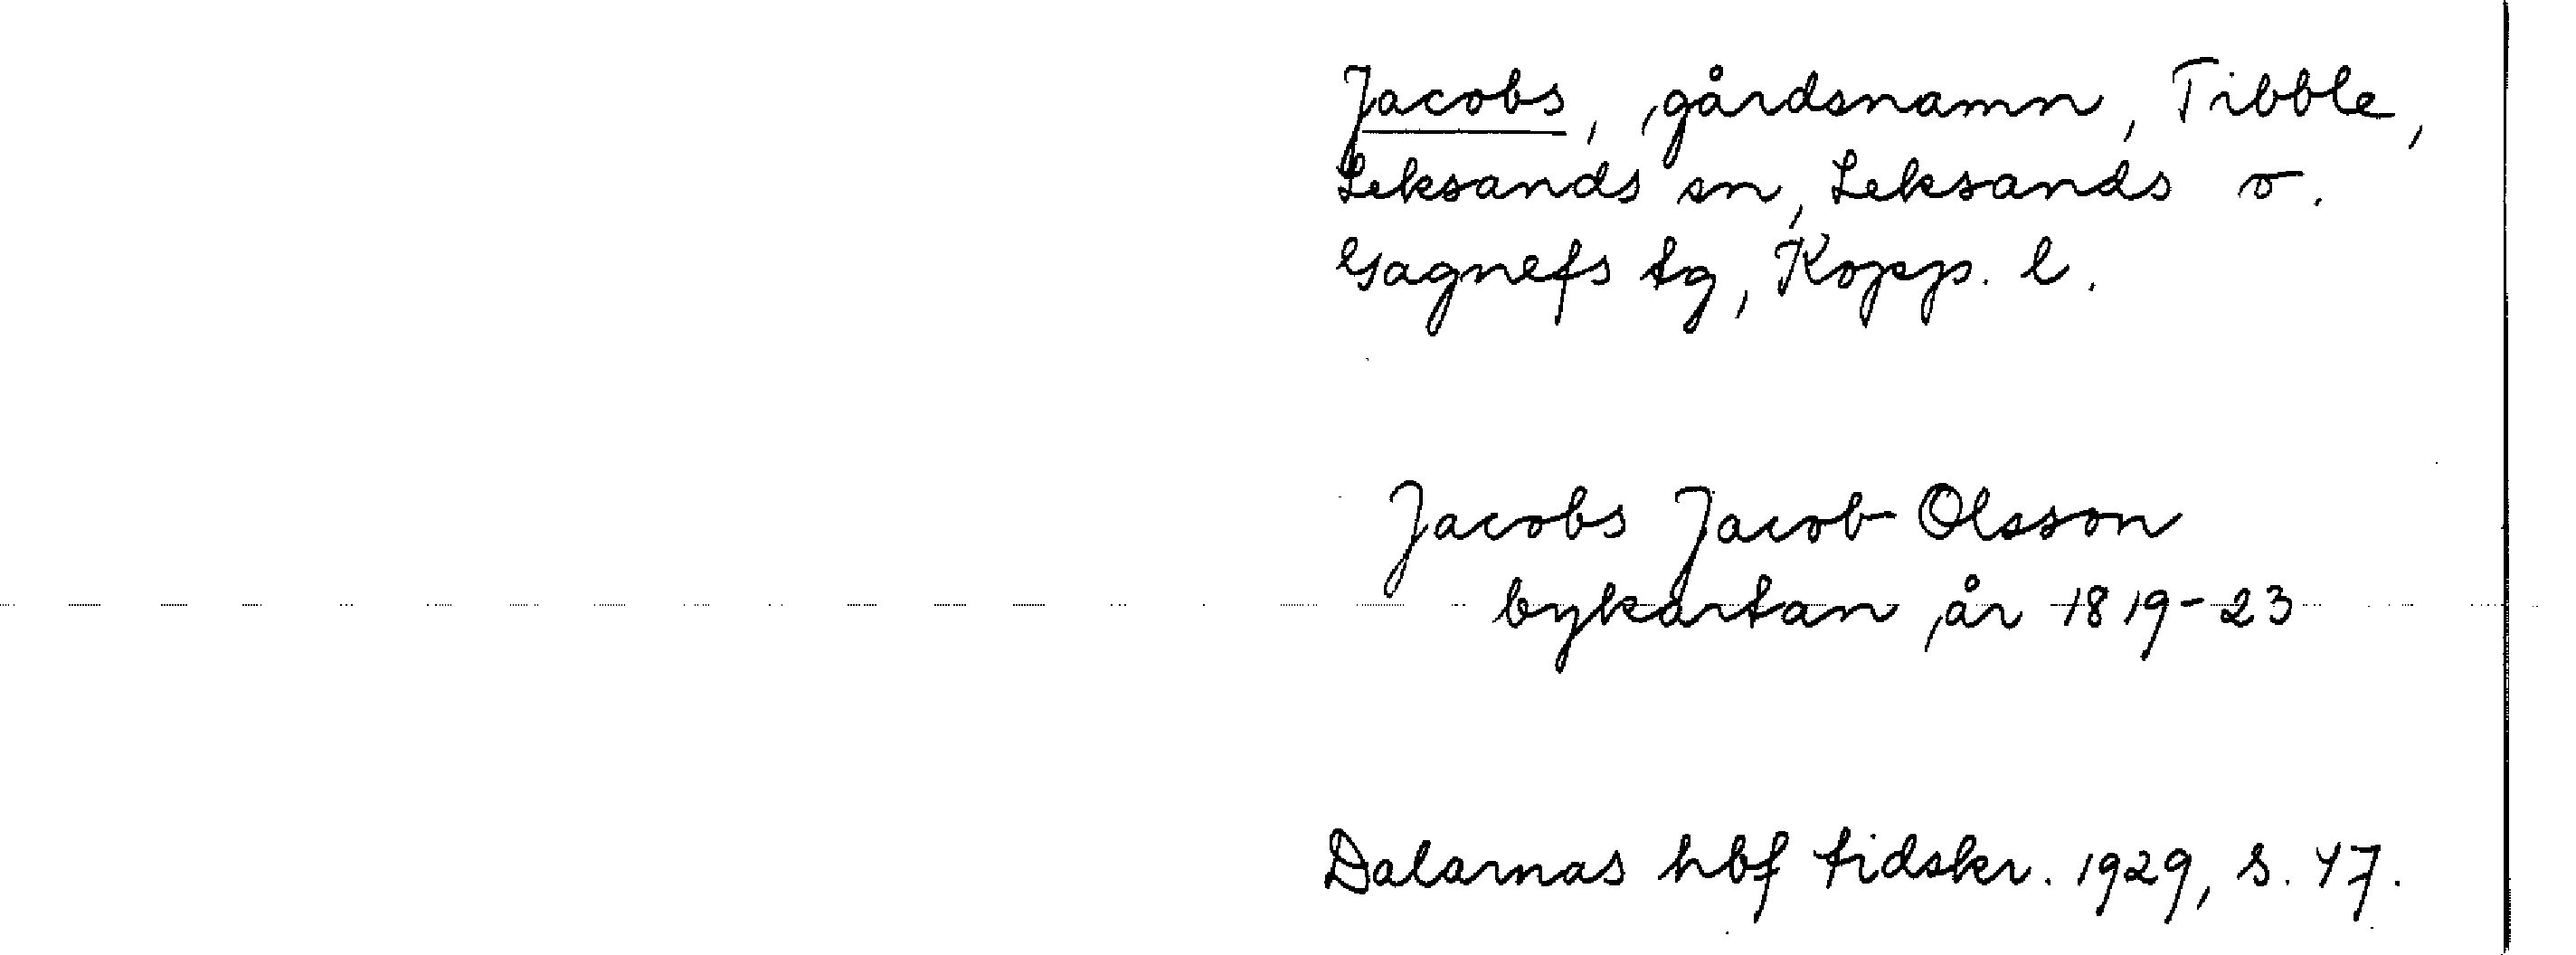 Jacobs, gårdsnamn, Tibble,
Leksands sn, Leksands o.
Gagnefs tg, Kopp. l.
Jacobs Jacob Olsson
bykartan år 1819-23
Dalarnas hbf tidskr. 1929, s. 47.